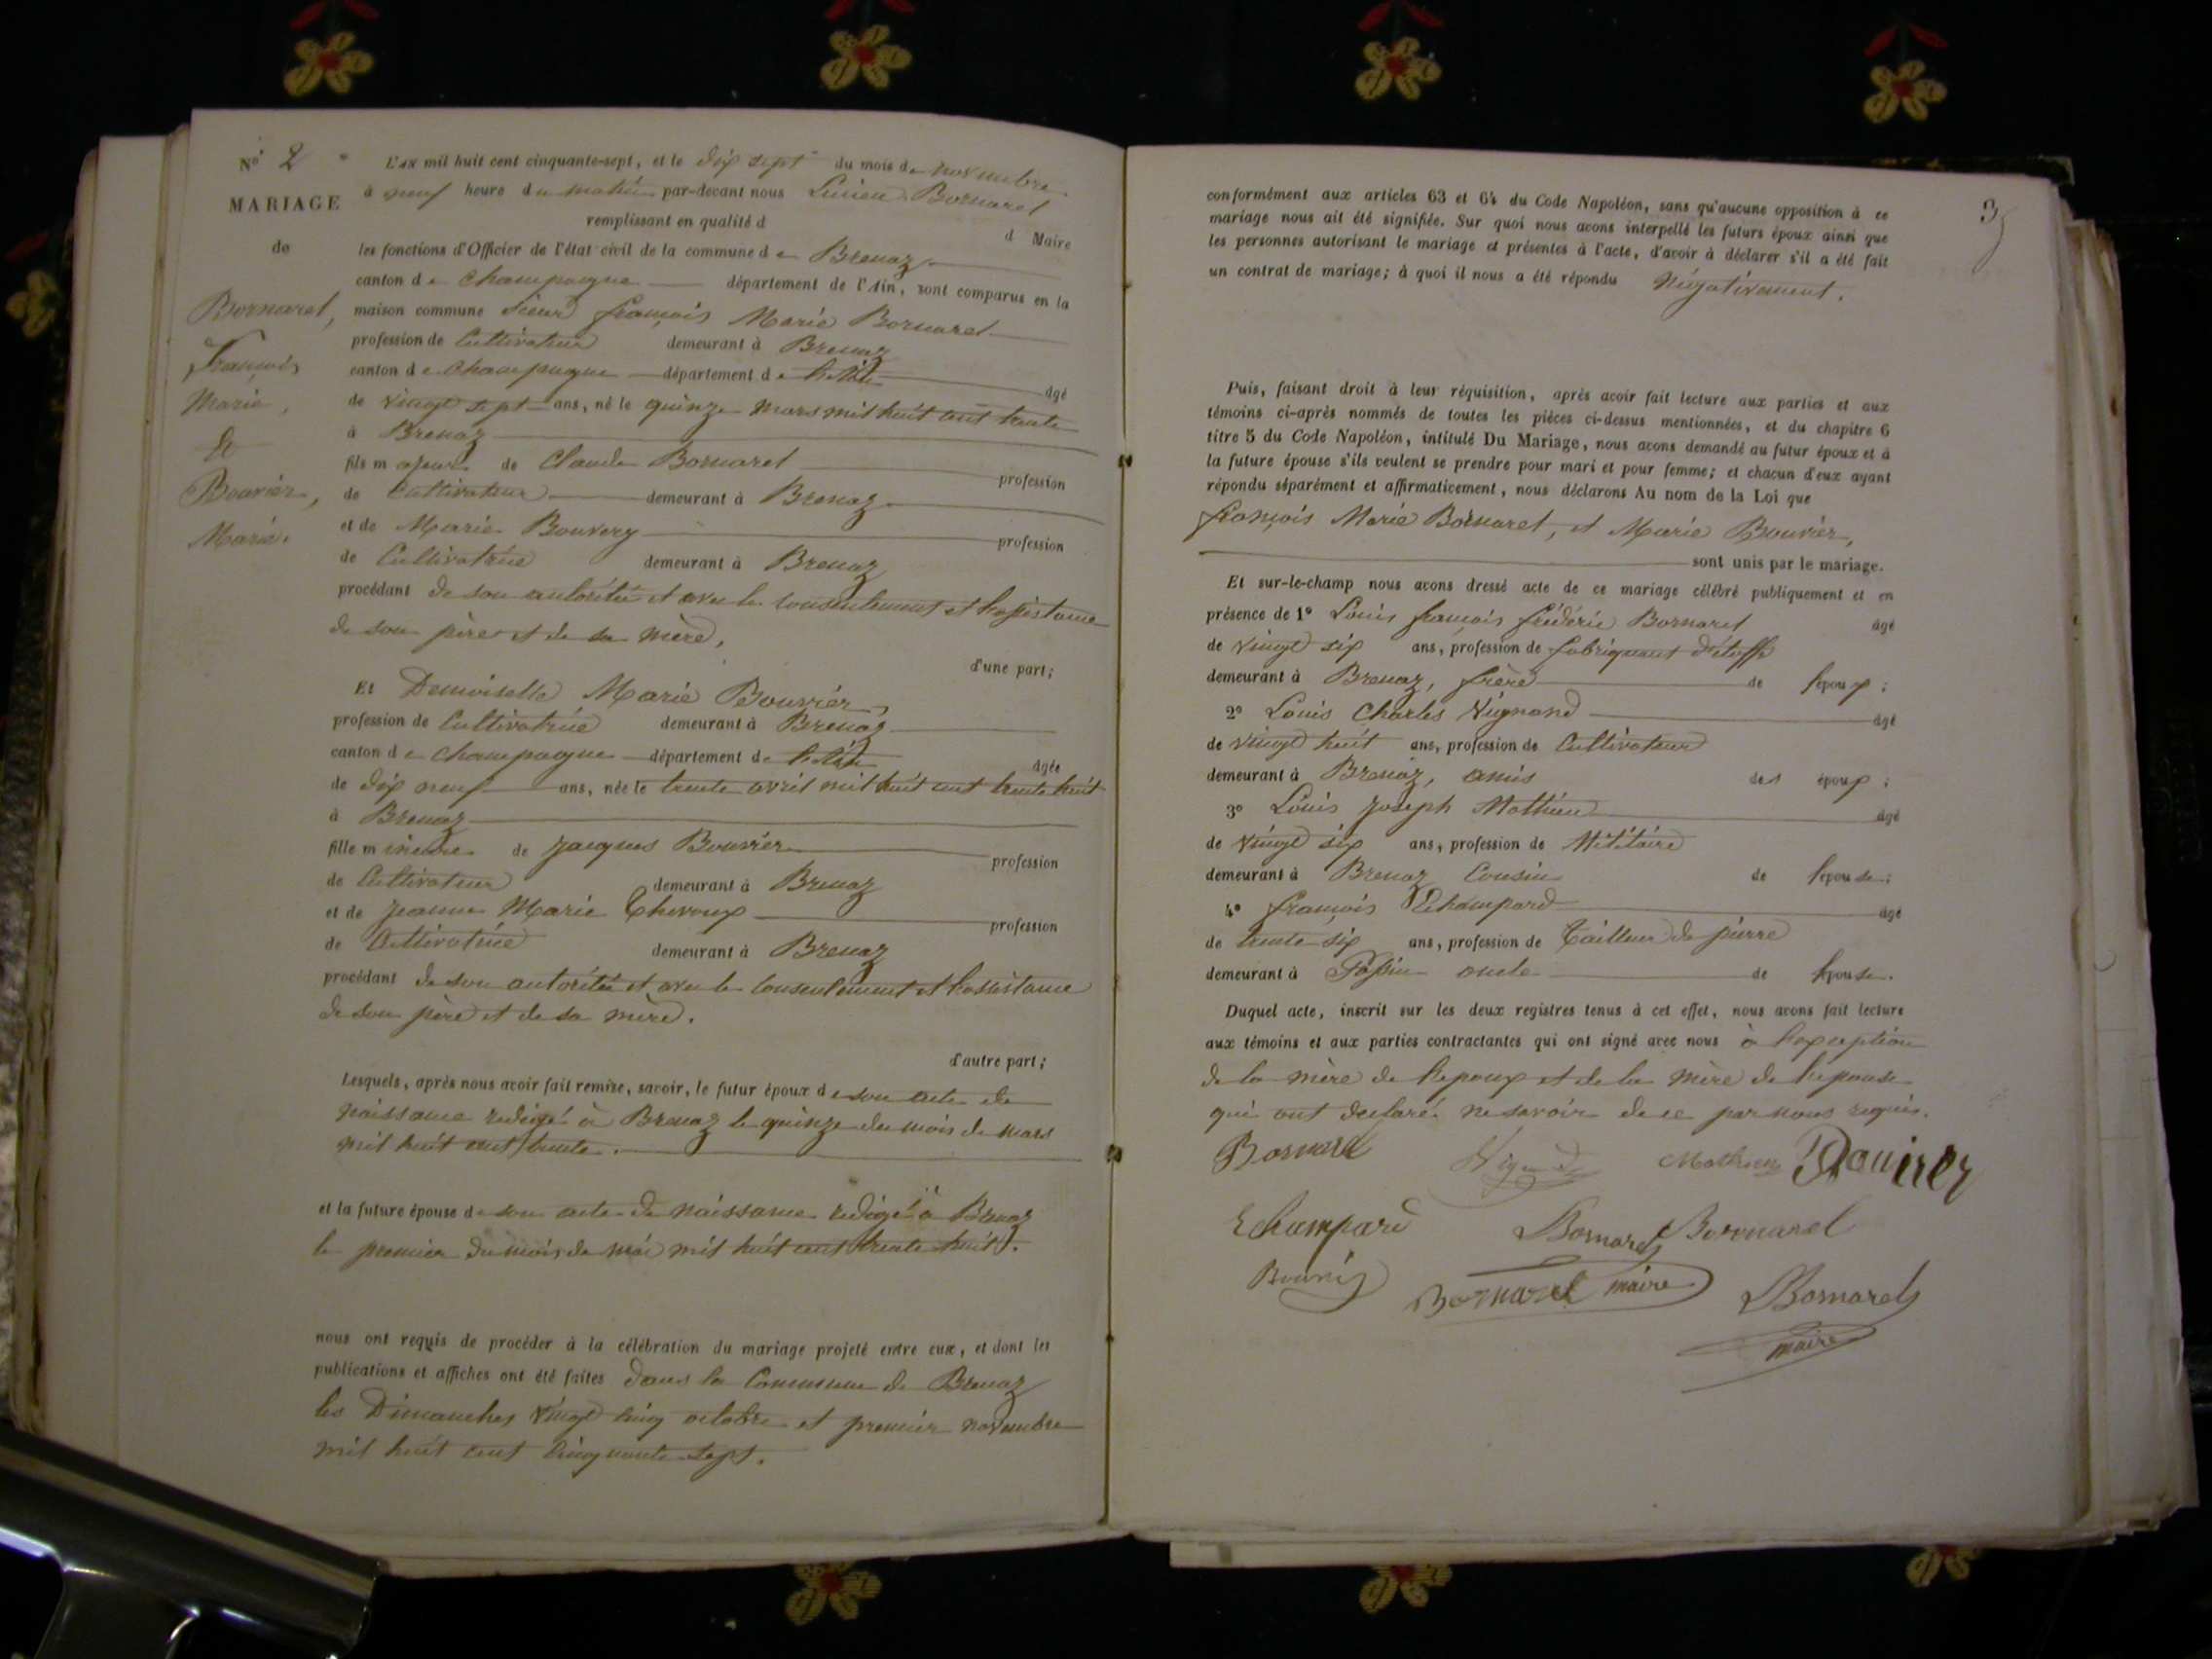 No 2
MARIAGE
de
Bornarel,
François
Marie,
&
Bouvier,
Marie.
L'AN mil huit cent cinquante-sept, et le dix sept du mois de novembre
à neuf heure du matin par-devant nous Lucien Bornarel
remplissant en qualité d
d Maire
les fonctions d'Officier de l'état civil de la commune de Brenaz
canton de Champagne département de l'Ain, sont comparus en la
maison commune sieur françois Marie Bornarel
profession de Cultivateur demeurant à Brenaz
canton de Champagne département de l'Ain âgé
de vingt sept ans, né le quinze mars mil huit cent trente
à Brenaz
fils majeur de Claude Bornarel profession
de Cultivateur demeurant à Brenaz
et de Marie Bouvery profession
de Cultivatrice demeurant à Brenaz
procédant de son autorité et avec le consentement et l'assistance
de son père et de sa mère,
d'une part;
Et Demoiselle Marie Bouvier,
profession de Cultivatrice demeurant à Brenaz
canton de Champagne département de l'Ain âgée
de dix neuf ans, née le trente avril mil huit cent trente huit
à Brenaz
fille mineure de Jacques Bouvier profession
de Cultivateur demeurant à Brenaz
et de Jeanne Marie profession
de Cultivatrice demeurant à Brenaz
procédant de son autorité et avec le consentement et l'assistance
de son père et de sa mère.
d'autre part;
Lesquels, après nous avoir fait remise, savoir, le futur époux de son acte de
naissance redigé à Brenaz le quinze du mois de mars
mil huit cent trente.
et la future épouse de son acte de naissance redigé à Brenaz
le premier du mois de mai mil huit cent trente huit.
nous ont requis de procéder à la célébration du mariage projeté entre eux, et dont les
publications et affiches ont été faites dans la Commune de Brenaz
les Dimanches vingt cinq octobre et premier novembre
mil huit cent cinquante sept.
conformément aux articles 63 et 64 du Code Napoléon, sans qu'aucune opposition à ce
mariage nous ait été signifiée. Sur quoi nous avons interpellé les futurs époux ainsi que
les personnes autorisant le mariage et présentes à l'acte, d'avoir à déclarer s'il a été fait
un contrat de mariage; à quoi il nous a été répondu Négativement.
Puis, faisant droit à leur réquisition, après avoir fait lecture aux parties et aux
témoins ci-après nommés de toutes les pièces ci-dessus mentionnées, et du chapitre 6
titre 5 du Code Napoléon, intitulé Du Mariage, nous avons demandé au futur époux et à
la future épouse s'ils veulent se prendre pour mari et pour femme; et chacun d'eux ayant
répondu séparément et affirmativement, nous déclarons Au nom de la Loi que
françois Marie Bornarel, et Marie Bouvier,
sont unis par le mariage.
Et sur-le-champ nous avons dressé acte de ce mariage célébré publiquement et en
présence de 1° Louis françois frédéric Bornarel âgé
de vingt six ans, profession de fabriquant d'étoffe
demeurant à Brenaz, frère de l'époux;
2° Louis Charles Vignand âgé
de vingt huit ans, profession de Cultivateur
demeurant à Brenaz, amis des époux;
3° Louis Joseph Mathieu âgé
de vingt six ans, profession de Militaire
demeurant à Brenaz Cousin de l'épouse;
4° françois Echampard âgé
de trente six ans, profession de Tailleur de pierre
demeurant à oncle de l'épouse.
Duquel acte, inscrit sur les deux registres tenus à cet effet, nous avons fait lecture
aux témoins et aux parties contractantes qui ont signé avec nous à l'exception
de la mère de l'époux et de la mère de l'épouse
qui ont declaré ne savoir de ce par nous requis.
Bornarel Mathieu Bouvier
Echampard Bornarel Bornarel
Bornarel maire Bornarel
maire